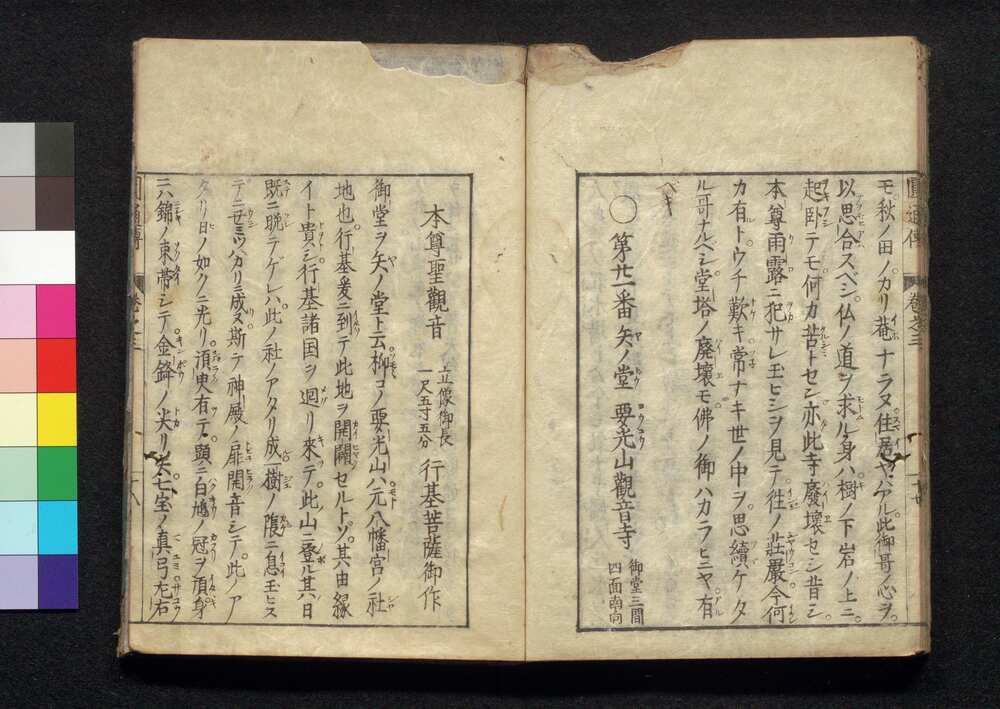 モ秋ノ田ノカリ菴ナラヌ住居ヤハアル此御哥ノ心ヲ
以思合スベシ仏ノ道ヲ求ル身ハ樹ノ下岩ノ上ニ
起卧テモ何カ苦トセン亦此寺廢壞セシ昔シ
本尊雨露ニ犯サレ玉ヒシヲ見テ徃ノ莊嚴今何
カ有トウチ歎キ常ナキ世ノ中ヲ思續ケタ
ル哥ナルベシ堂塔ノ廢壞モ佛ノ御ハカラヒニヤ有
ベキ
○第廿一番矢ノ堂要光山觀音寺 御堂三間四面南向
本尊聖觀音 立像御長一尺五寸五分 行基菩薩御作
御堂ヲ矢ノ堂ト云柳コノ要光山ハ元八幡宮ノ社
地也行基爰ニ到テ此地ヲ開闢セルトゾ其由緣
イト貴シ行基諸国ヲ廻リ來テ此山ニ登ル其日
既ニ晩テゲレハ此ノ社ノアタリ成樹ノ陰ニ息玉ヒス
テニ丑ミツハカリニ成又斯テ神殿ノ扉開音シテ此ノア
タリ日ノ如クニ光リ須臾有テ顕ニ白鳩ノ冠ヲ頂身
ニハ錦ノ束帯シテ金鋒ノ尖リ矢七宝ノ真弓左右